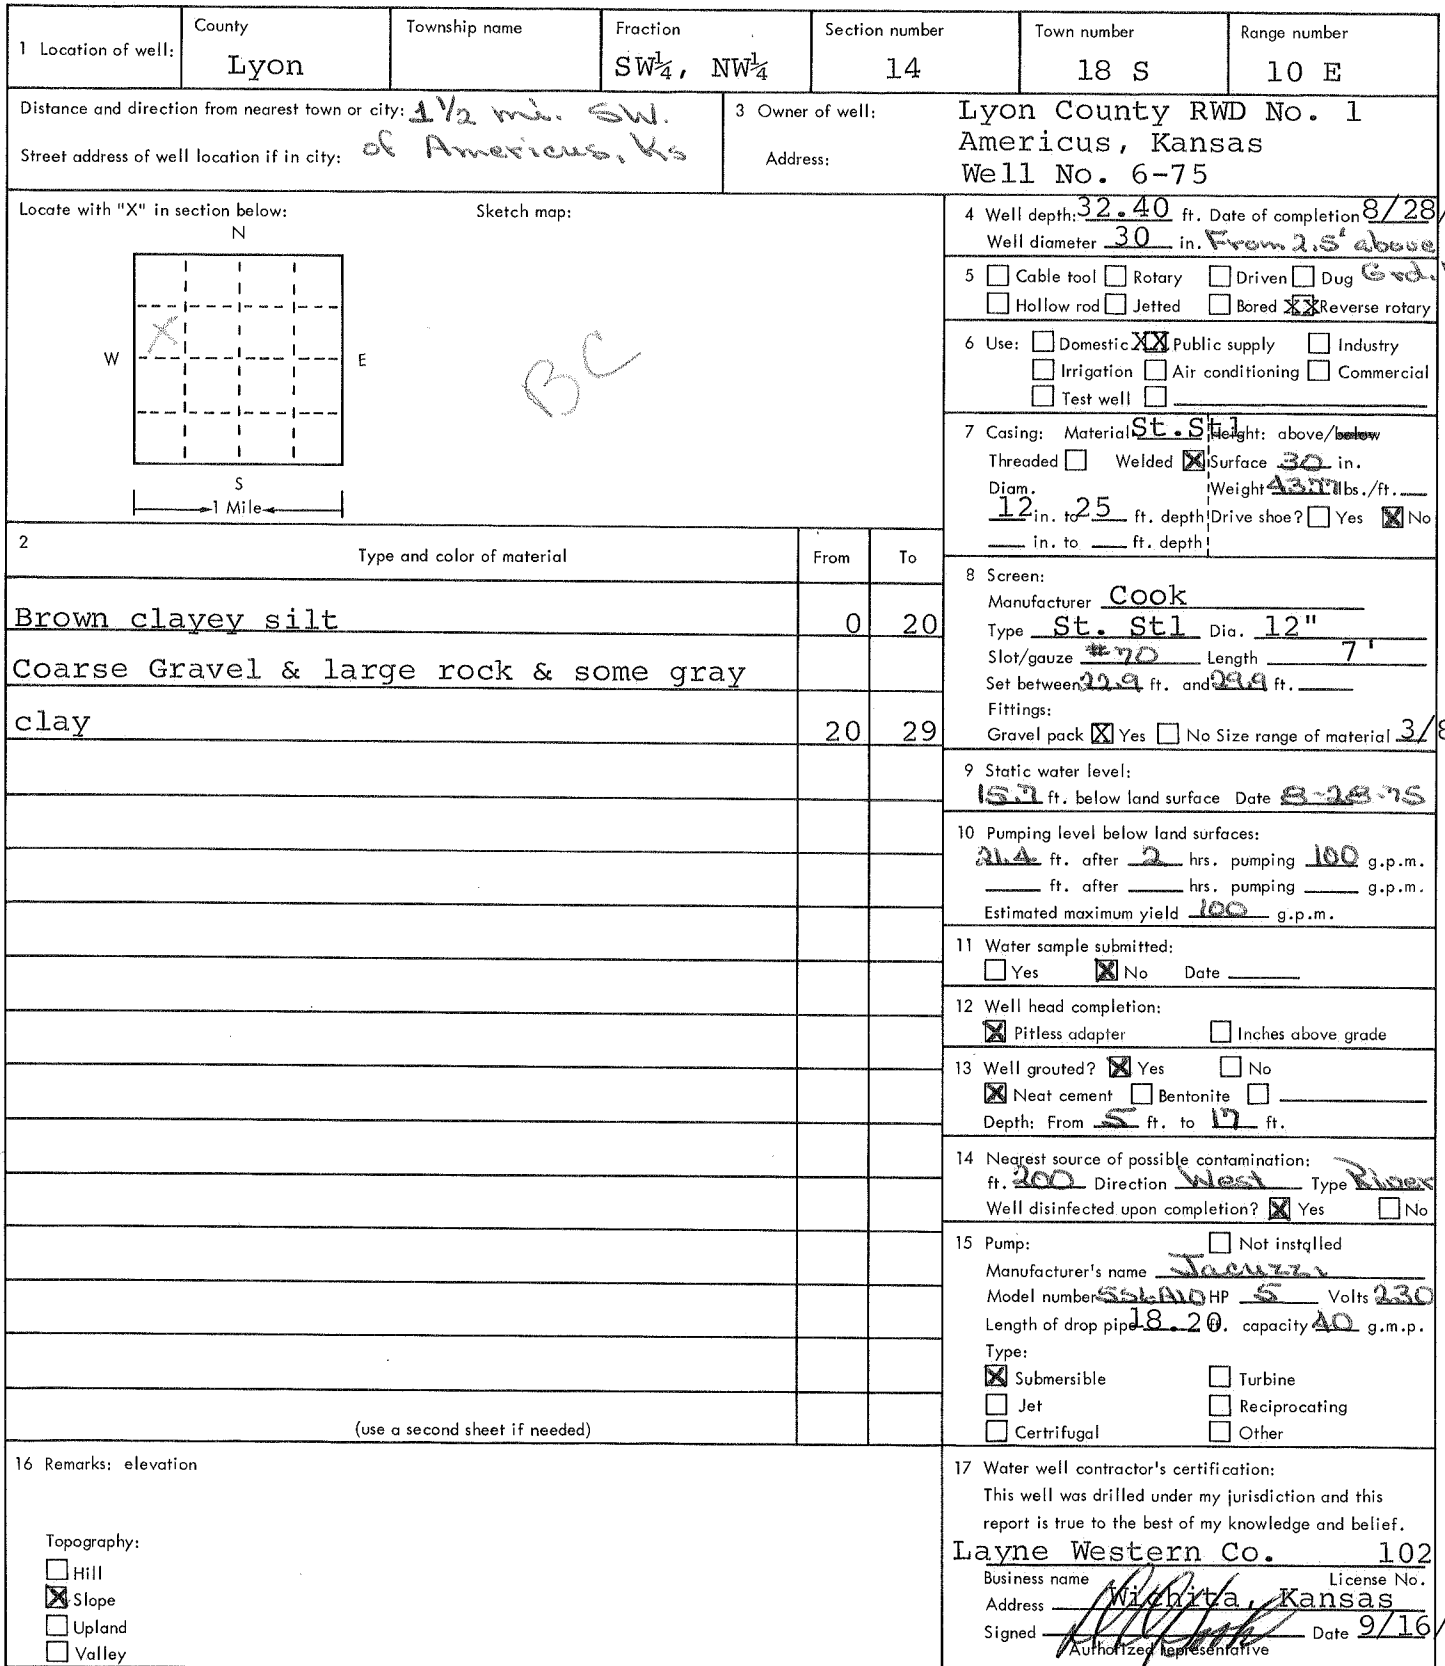 1 Location of well:
County
Lyon
Township name
Fraction
SW¼, NW¼
Section number
14
Town number
18 S
Range number
10 E
Distance and direction from nearest town or city: 1½ mi. SW.
Street address of well location if in city: of Americus, Ks
3 Owner of well: Lyon County RWD No. 1
Americus, Kansas
Address:
Well No. 6-75
Locate with "X" in section below:
Sketch map:
N
X
W E
BC
S
1 Mile
2
Type and color of material From To
Brown clayey silt 0 20
Coarse Gravel & large rock & some gray
clay 20 29
(use a second sheet if needed)
4 Well depth: 32.40 ft. Date of completion 8/28/
Well diameter 30 in. From 2.5' above
Grd.
5 Cable tool Rotary Driven Dug
Hollow rod Jetted Bored XX Reverse rotary
6 Use: Domestic XX Public supply Industry
Irrigation Air conditioning Commercial
Test well
7 Casing: Material St. Stl Height: above/below
Threaded Welded X Surface 30 in.
Diam. Weight 43.77 lbs./ft.
12 in. to 25 ft. depth Drive shoe? Yes X No
in. to ft. depth
8 Screen:
Manufacturer Cook
Type St. Stl Dia. 12"
Slot/gauze #70 Length 7'
Set between 22.9 ft. and 29.9 ft.
Fittings:
Gravel pack X Yes No Size range of material 3/8
9 Static water level:
15.7 ft. below land surface Date 8-28-75
10 Pumping level below land surfaces:
21.4 ft. after 2 hrs. pumping 100 g.p.m.
ft. after hrs. pumping g.p.m.
Estimated maximum yield 100 g.p.m.
11 Water sample submitted:
Yes X No Date
12 Well head completion:
X Pitless adapter Inches above grade
13 Well grouted? X Yes No
X Neat cement Bentonite
Depth: From 5 ft. to 17 ft.
14 Nearest source of possible contamination:
ft. 200 Direction West Type River
Well disinfected upon completion? X Yes No
15 Pump: Not installed
Manufacturer's name Jacuzzi
Model number HP 5 Volts 230
Length of drop pipe 18.20 ft. capacity 40 g.m.p.
Type:
X Submersible Turbine
Jet Reciprocating
Certrifugal Other
16 Remarks: elevation
Topography:
Hill
X Slope
Upland
Valley
17 Water well contractor's certification:
This well was drilled under my jurisdiction and this
report is true to the best of my knowledge and belief.
Layne Western Co. 102
Business name License No.
Address Wichita, Kansas
Signed Date 9/16/
Authorized representative